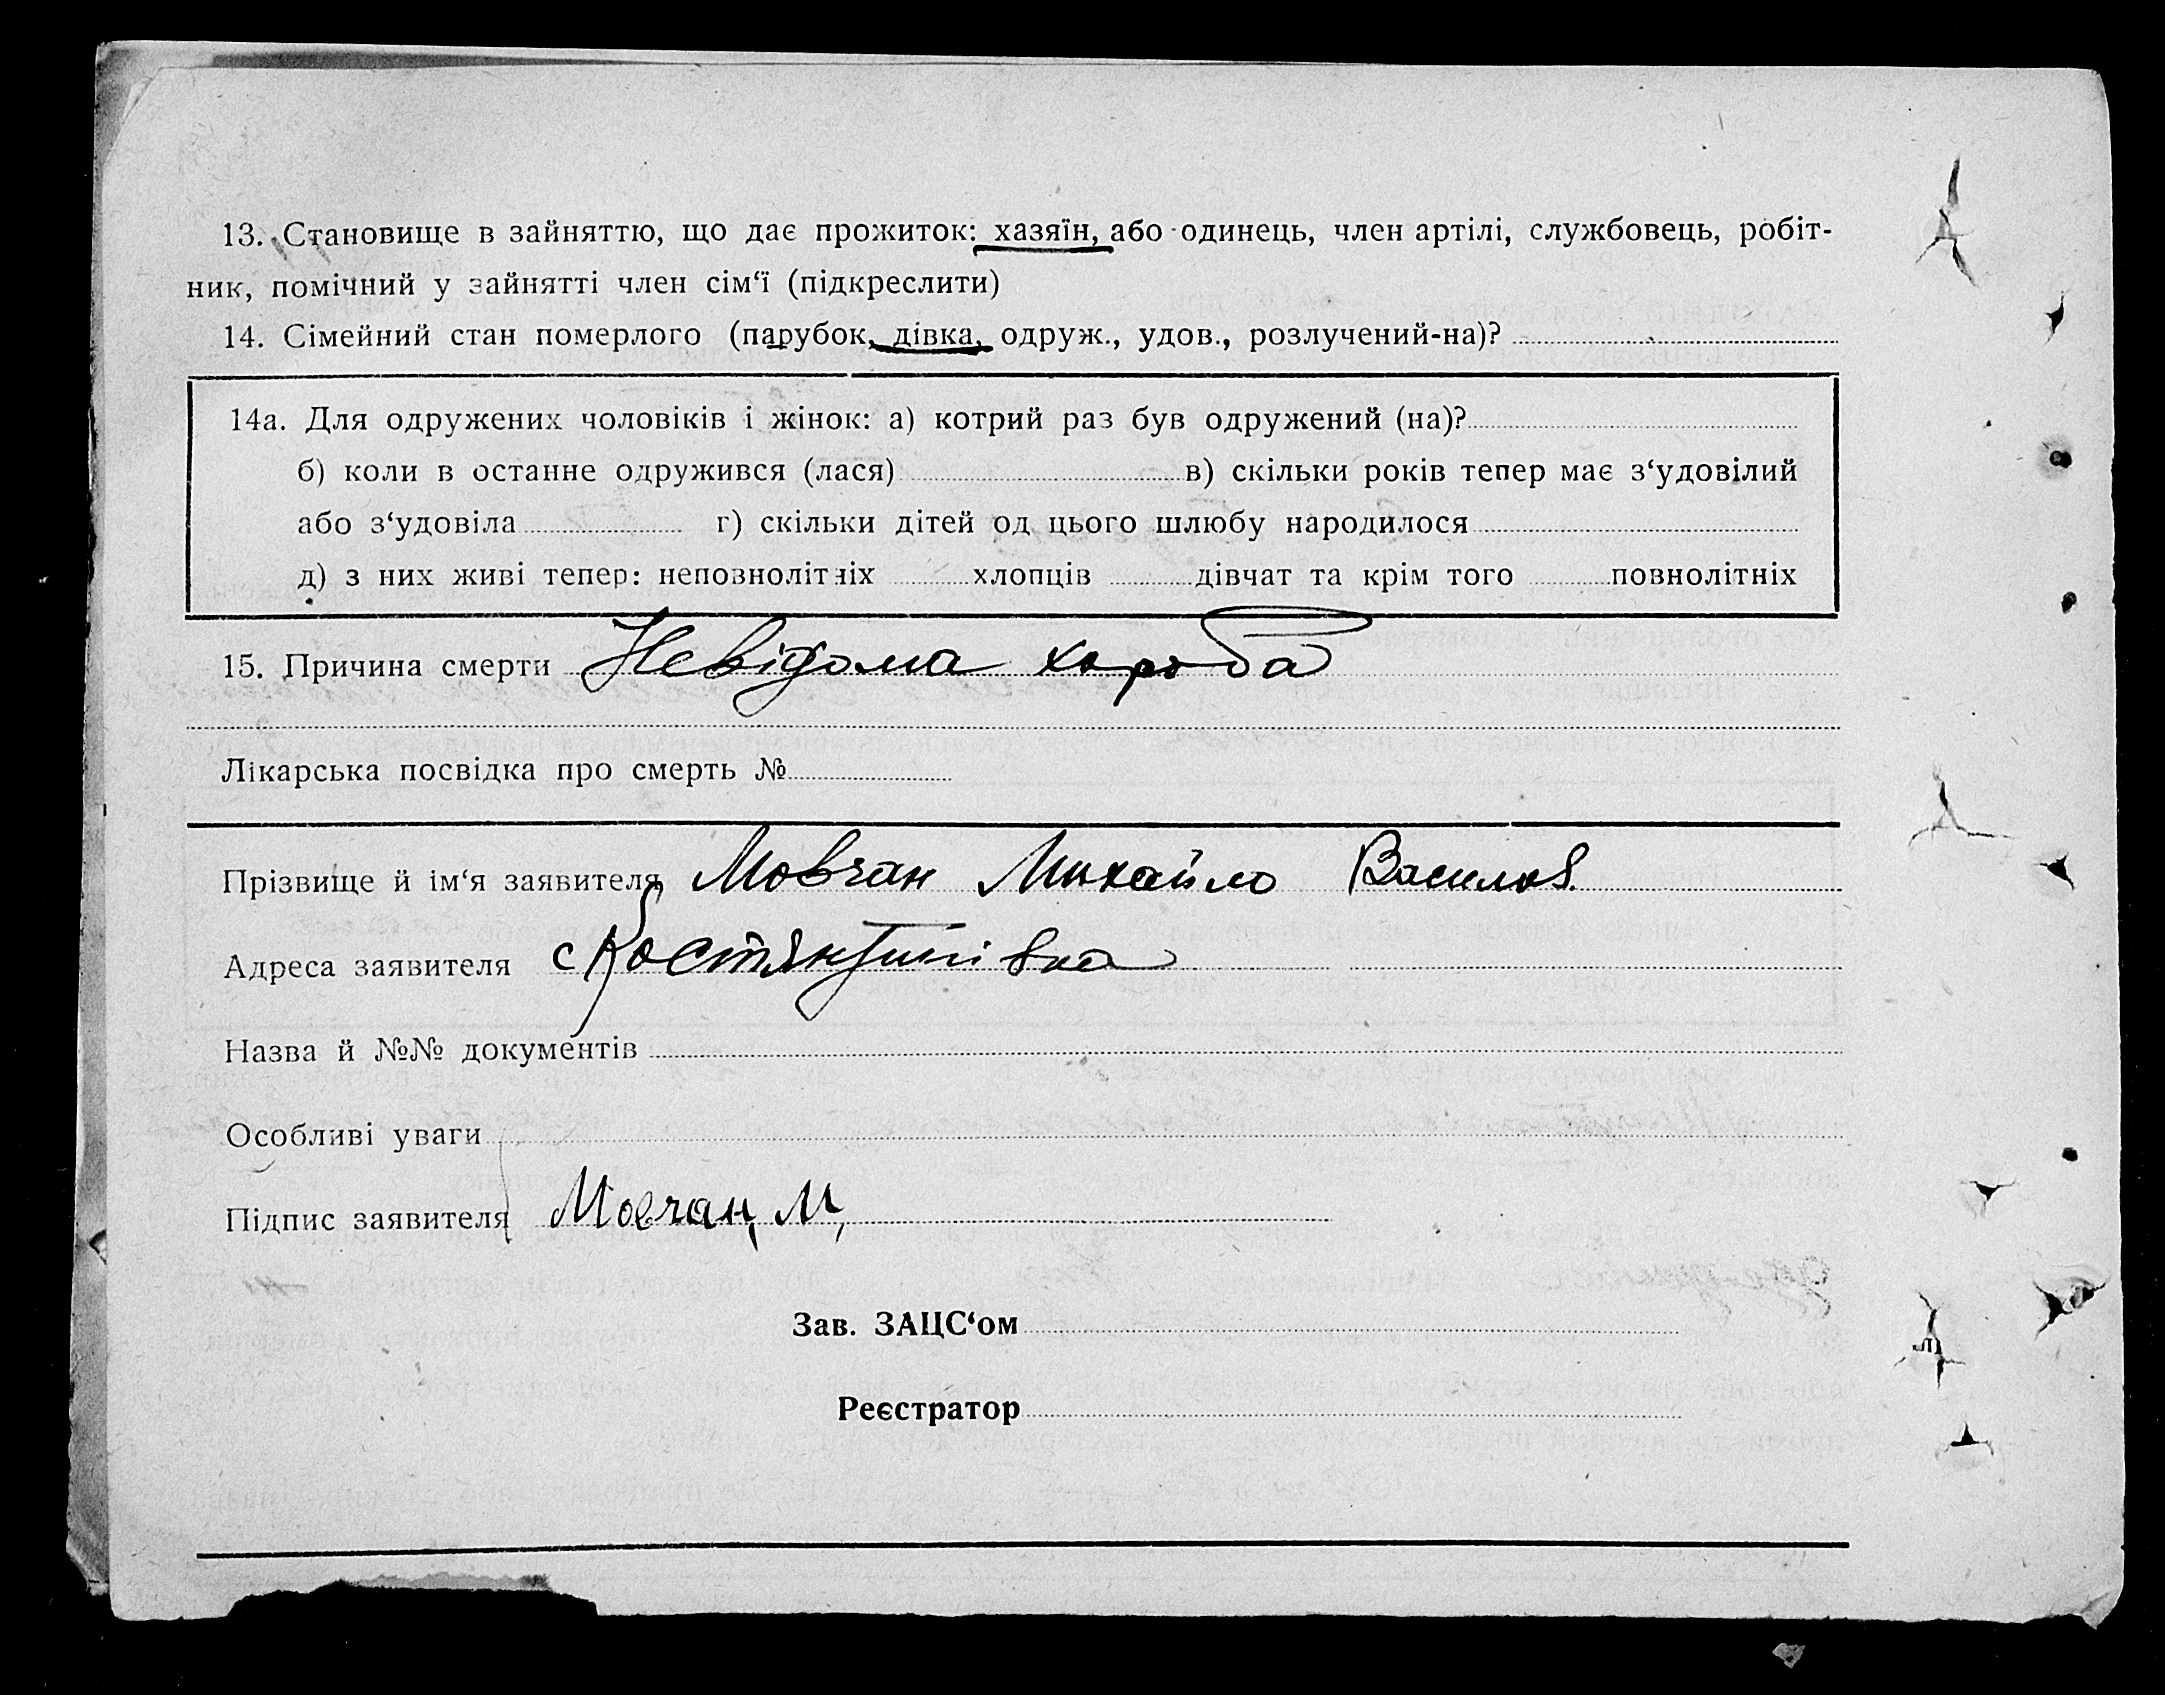 13. Становище в зайняттю, що дає прожиток: хазяїн, або одинець, член артілі, службовець, робіт-
ник, помічний у зайнятті член сім‘ї (підкреслити)
14. Сімейний стан померлого (парубок, дівка, одруж., удов., розлучений-на)?
14а. Для одружених чоловіків і жінок: а) котрий раз був одружений (на)?
б) коли в останне одружився (лася) в) скільки років тепер має з‘удовілий
або з‘удовіла г) скільки дітей од цього шлюбу народилося
д) з них живі тепер: неповнолітніх хлопців дівчат та крім того повнолітніх
15. Причина смерти Невідома хороба
Лікарська посвідка про смерть №
Прізвище й ім‘я заявителя Мовчан Михайло Василов.
Адреса заявителя с Костянтинівка
Назва й №№ документів
Особливі уваги
Підпис заявителя Мовчан, М,
Зав. ЗАЦС‘ом
Реєстратор